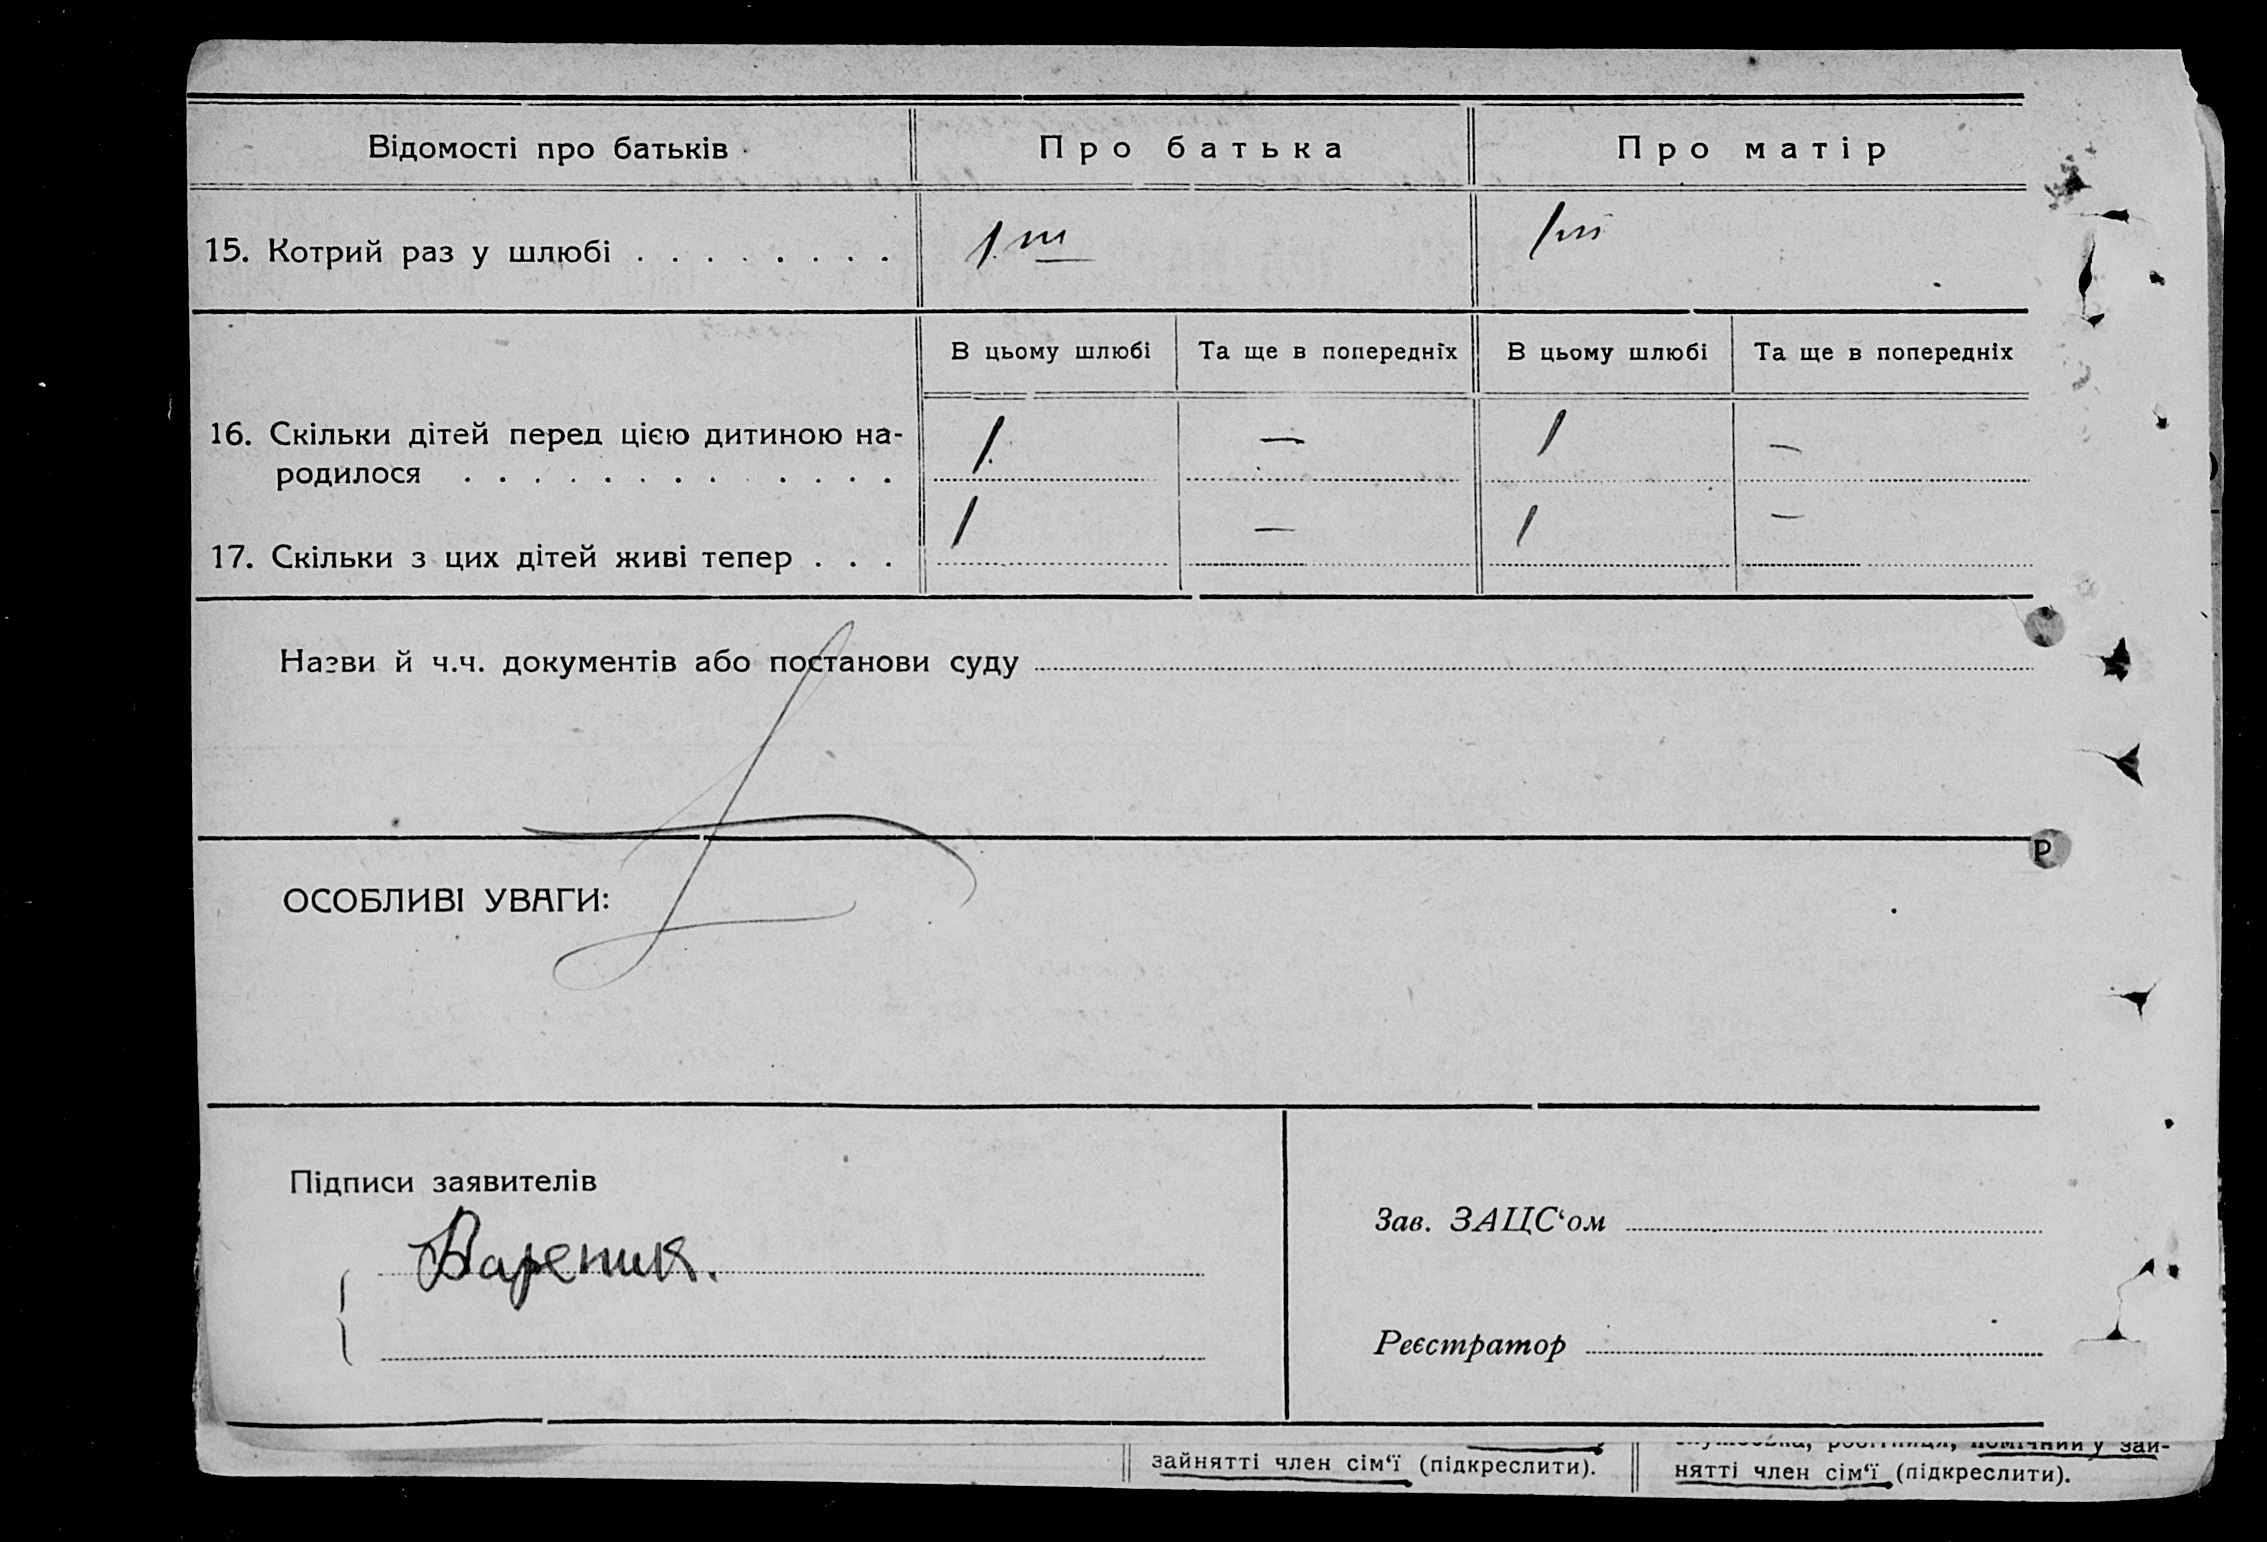 Відомості про батьків
Про батька
Про матір
15. Котрий раз у шлюбі . . . . . . . .
1.ий
1ий
В цьому шлюбі
Та ще в попередніх
В цьому шлюбі
Та ще в попередніх
16. Скільки дітей перед цією дитиною на-
родилося . . . . . . . . . . . . .
1.
—
1
—
17. Скільки з цих дітей живі тепер . . .
1
—
1
—
Назви й ч.ч. документів або постанови суду
Р
ОСОБЛИВІ УВАГИ:
Підписи заявителів
Вареник.
Зав. ЗАЦС‘ом
Реєстратор
зайнятті член сім‘ї (підкреслити).
помічний у зай-
нятті член сім‘ї (підкреслити).